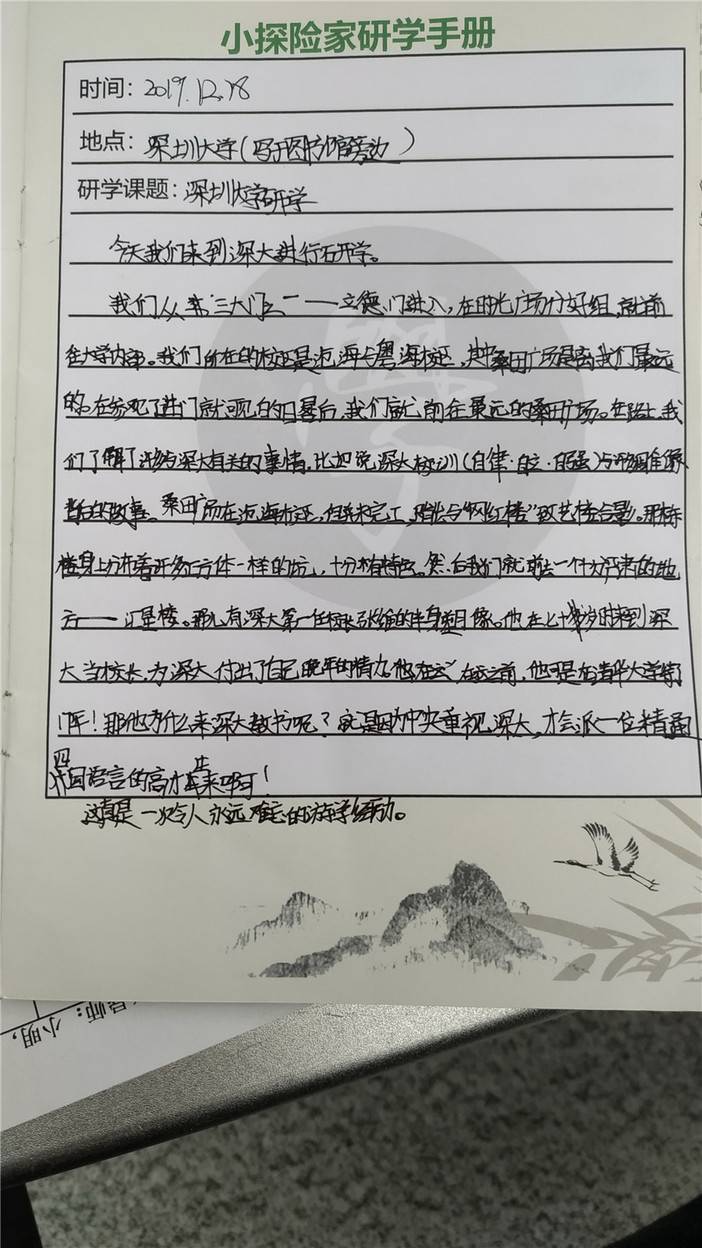 小探险家研学手册
时间：2019.12.18
地点：深圳大学（写于图书馆旁边）
研学课题：深圳大学研学
今天我们来到深大进行研学。
我们从第三大门之一——立德门进入，在时光广场分好组，就前
往大学内部。我们所在的校区是沧海与粤海校区，其中桑田广场是离我们最远
的。在参观了进门就可见的日晷后，我们就前往最远的桑田广场。在路上，我
们了解了许多与深大有关的事情，比如说深大校训（自律·自立·自强）与
背后的故事。桑田广场在沧海校区，但未完工，随后与“网红楼”致艺楼合影。那栋
楼身上分布着许多正方体一样的坑，十分有特色。然后我们就前去一个大师来的地
方——汇星楼。那儿有深大第一任校长张维的半身塑像。他在七十岁时来到深
大当校长，为深大付出了自己晚年的精力。他在这之前，他可是在清华大学
那他为什么来深大教书呢？就是因为中央重视深大，才会派一位精通
四国语言的高才生来啊！
这真是一次令人永远难忘的游学活动。
导师：小明，